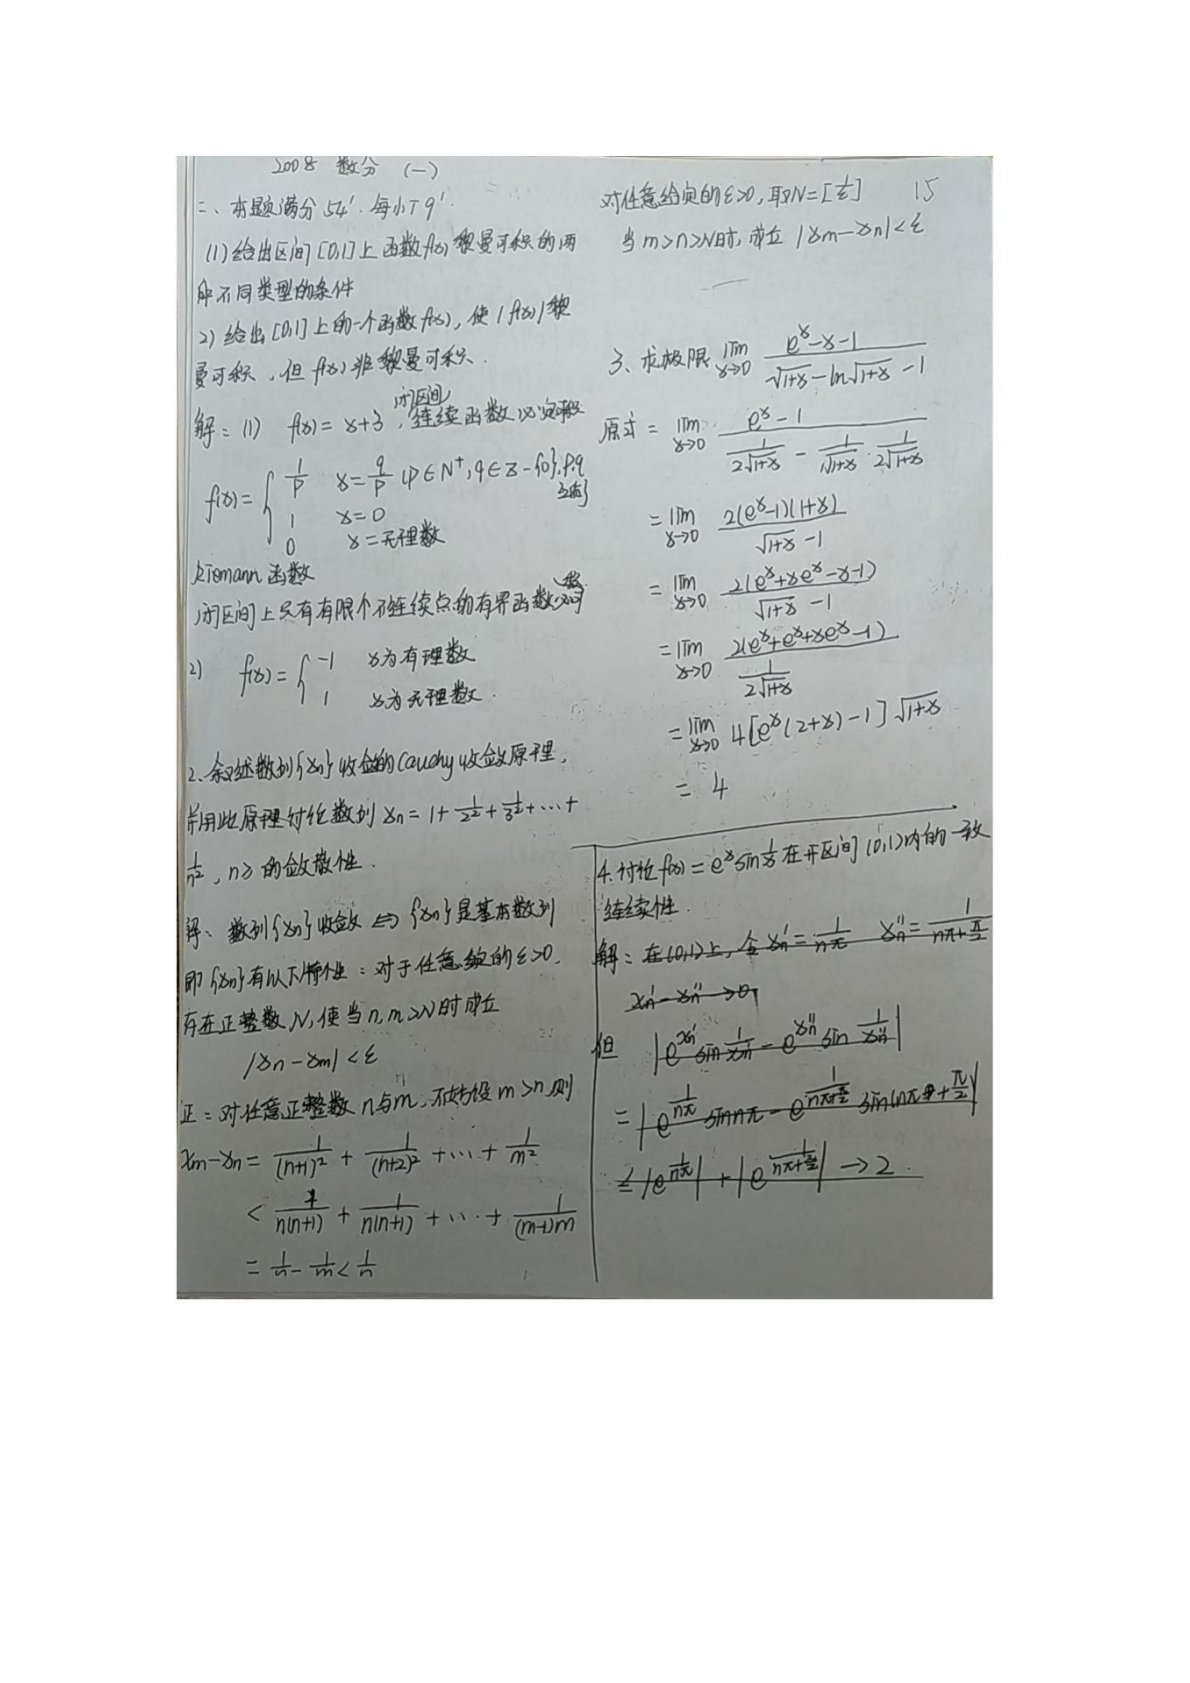 2008 数分 (一)
二、本题满分54'.每小T 9'.
(1)给出区间[0,1]上函数f(x)黎曼可积的两
种不同类型的条件
2)给出[0,1]上的一个函数f(x),使|f(x)|黎
曼可积,但f(x)非黎曼可积.
解:(1) f(x)=x+3,闭区间连续函数必定可积
f(x)={ 1/p x=q/p (p∈N⁺,q∈Z-{0},p.q互质)
1 x=0
0 x=无理数
Riemann函数
闭区间上只有有限个不连续点的有界函数必可积
2) f(x)={ -1 x为有理数
1 x为无理数.
2、叙述数列{xn}收敛的Cauchy收敛原理,
并用此原理讨论数列 xn=1+1/2²+1/3²+…+
1/n²,n≥ 的敛散性.
解、数列{xn}收敛⇔{xn}是基本数列
即{xn}有以下特性:对于任意给定的ε>0,
存在正整数N,使当n,m>N时成立
|xn-xm|<ε
证:对任意正整数n与m,不妨设m>n,则
xm-xn=1/(n+1)²+1/(n+2)²+…+1/m²
<1/n(n+1)+1/n(n+1)+…+1/(m-1)m
=1/n-1/m<1/n
对任意给定的ε>0,取N=[1/ε] 15
当m>n>N时,成立|xm-xn|<ε
3、求极限 lim x→0 (e^x-x-1)/(√(1+x)-ln√(1+x)-1)
原式=lim x→0 (e^x-1)/(1/(2√(1+x))-1/√(1+x)·1/(2√(1+x)))
=lim x→0 2(e^x-1)(1+x)/(√(1+x)-1)
=lim x→0 2(e^x+xe^x-x-1)/(√(1+x)-1)
=lim x→0 2(e^x+e^x+xe^x-1)/(1/(2√(1+x)))
=lim x→0 4[e^x(2+x)-1]√(1+x)
=4
4.讨论f(x)=e^x sin 1/x 在开区间(0,1)内的一致
连续性.
解:在(0,1)上,令xn'=1/nπ xn''=1/(nπ+π/2)
xn'-xn''→0,
但 |e^xn' sin 1/xn'-e^xn'' sin 1/xn''|
=|e^(1/nπ) sin nπ-e^(1/(nπ+π/2)) sin(nπ+π/2)|
≤|e^(1/nπ)|+|e^(1/(nπ+π/2))|→2.